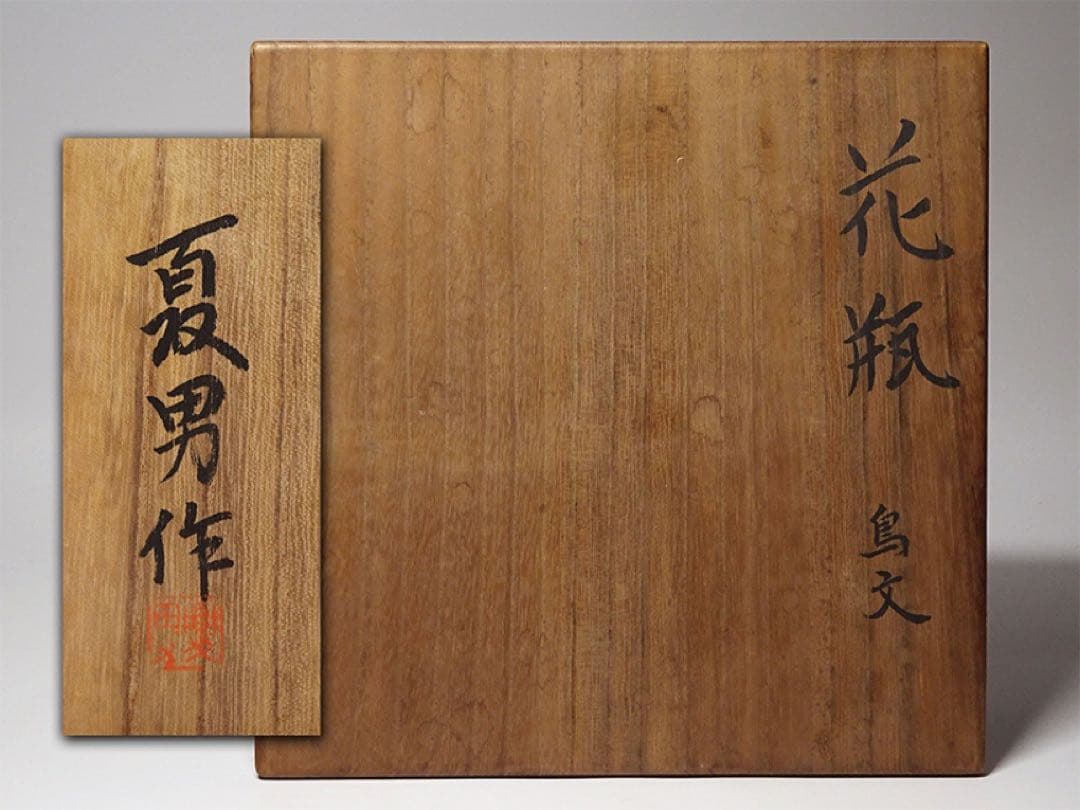 花瓶 鳥文
夏男作